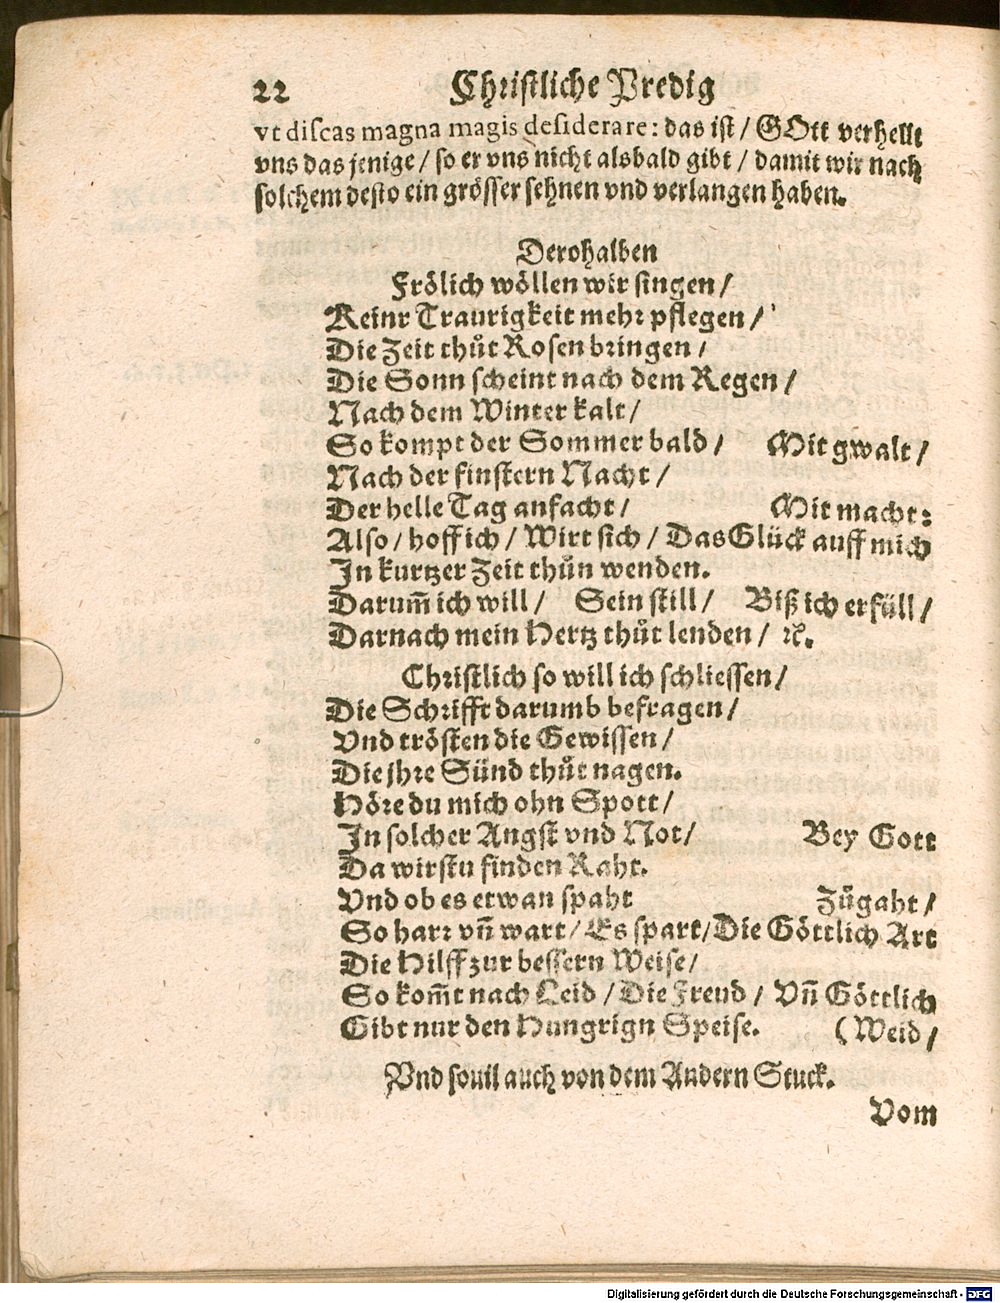 22 Christliche Predig
vt discas magna magis desiderare: das ist / GOtt verhellt
vns das jenige / so er vns nicht alsbald gibt / damit wir nach
solchem desto ein grösser sehnen vnd verlangen haben.
Derohalben
Frölich wöllen wir singen /
Keinr Traurigkeit mehr pflegen /
Die Zeit thůt Rosen bringen /
Die Sonn scheint nach dem Regen /
Nach dem Winter kalt /
So kompt der Sommer bald / Mit gwalt /
Nach der finstern Nacht /
Der helle Tag anfacht / Mit macht:
Also / hoff ich / Wirt sich / Das Glück auff mich
In kurtzer Zeit thůn wenden.
Darum̃ ich will / Sein still / Biß ich erfüll /
Darnach mein Hertz thůt lenden / ꝛc.
Christlich so will ich schliessen /
Die Schrifft darumb befragen /
Vnd trösten die Gewissen /
Die jhre Sünd thůt nagen.
Höre du mich ohn Spott /
In solcher Angst vnd Not / Bey Gott
Da wirstu finden Raht.
Vnd ob es etwan spaht Zůgaht /
So harr vñ wart / Es spart / Die Göttlich Art
Die Hilff zur bessern Weise /
So kom̃t nach Leid / Die Freud / Vñ Göttlich
Gibt nur den Hungrign Speise. (Weid /
Vnd souil auch von dem Andern Stuck.
Vom
Digitalisierung gefördert durch die Deutsche Forschungsgemeinschaft - DFG